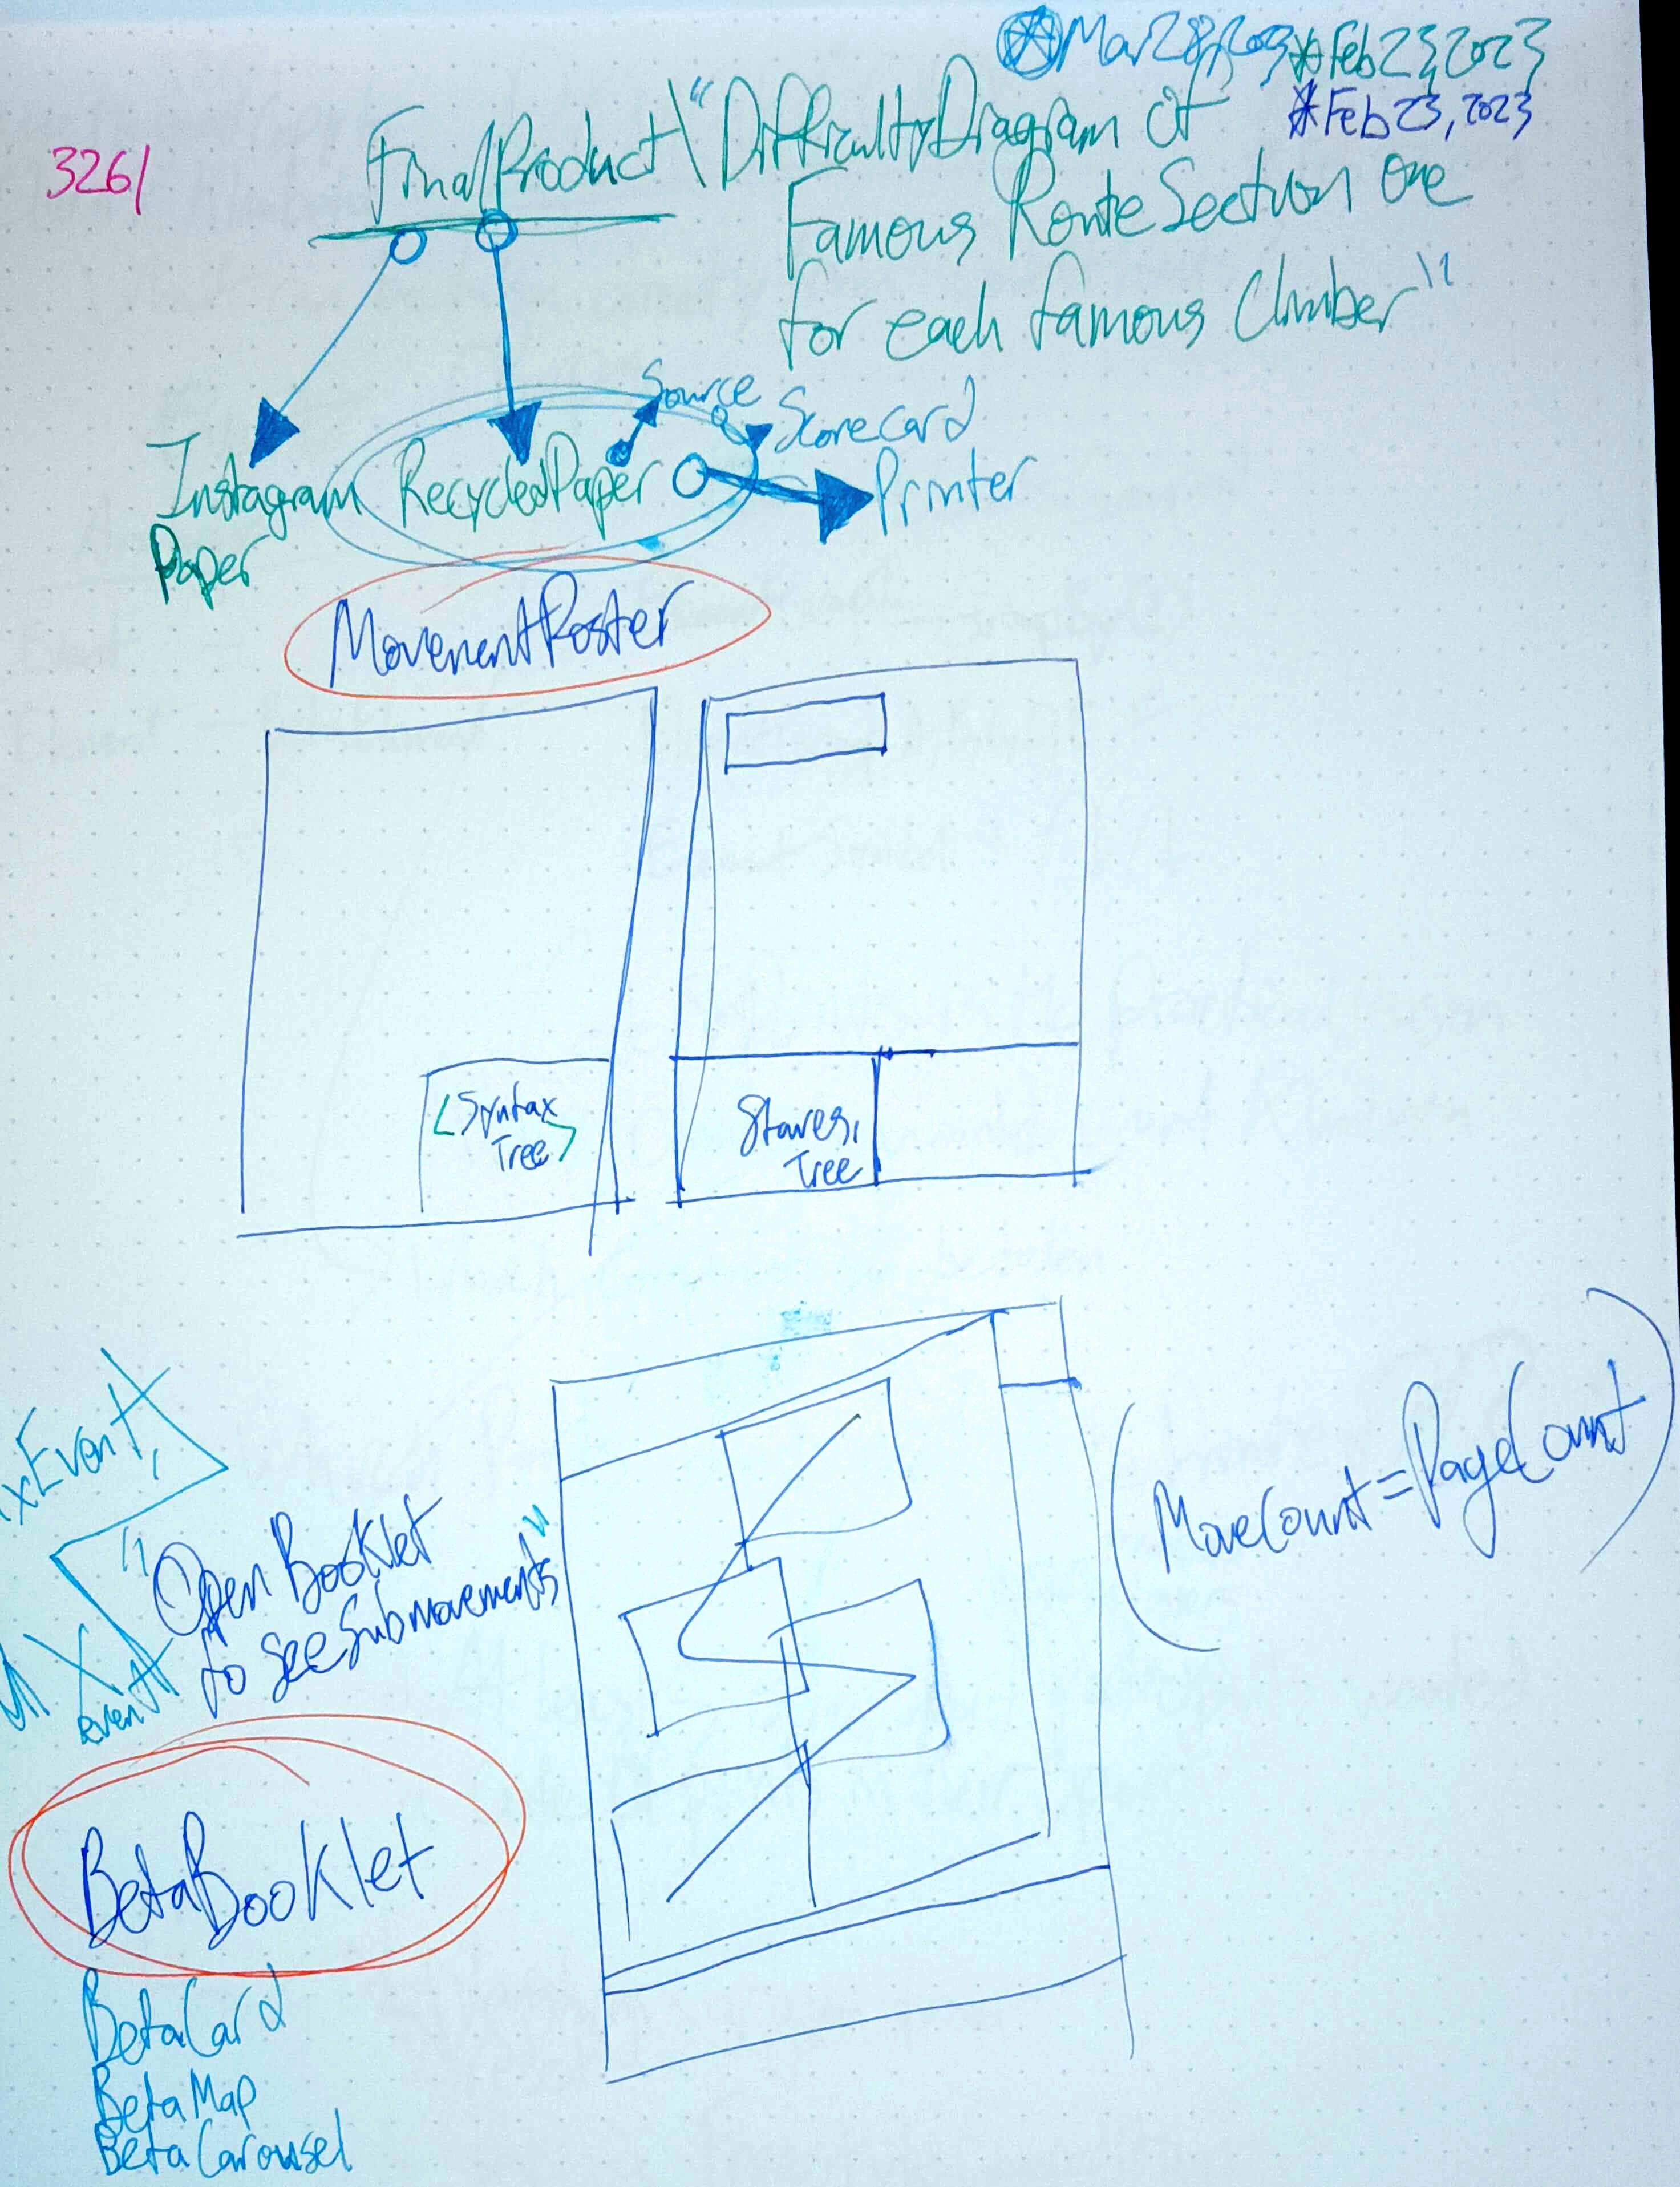 Mar 28, 2023 *Feb 23, 2023
*Feb 23, 2023
326/
FinalProduct\"DifficultyDiagram of
Famous RouteSection One
for each famous Climber"
Source
Scorecard
Instagram
Paper
RecycledPaper
Printer
MovementPoster
<Syntax
Tree>
Staves,
Tree
xEvent,
(MoveCount=PageCount)
"Open Booklet
to See Submovements"
X
Event
BetaBooklet
BetaCard
BetaMap
BetaCarousel